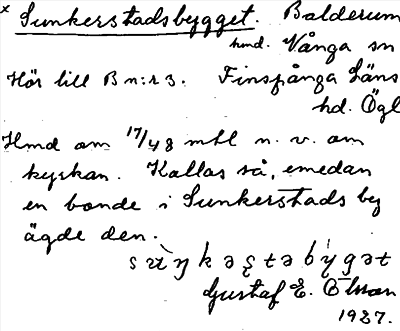 x Sunkerstadsbygget. Balderum
hmd. Vånga sn
Hör till Bn:r 3. Finspånga Läns
hd. Ögl
Hmd om 17/48 mtl n. v. om
kyrkan. Kallas så, emedan
en bonde i Sunkerstads by
ägde den.
Gustaf E. Olsson
1927.